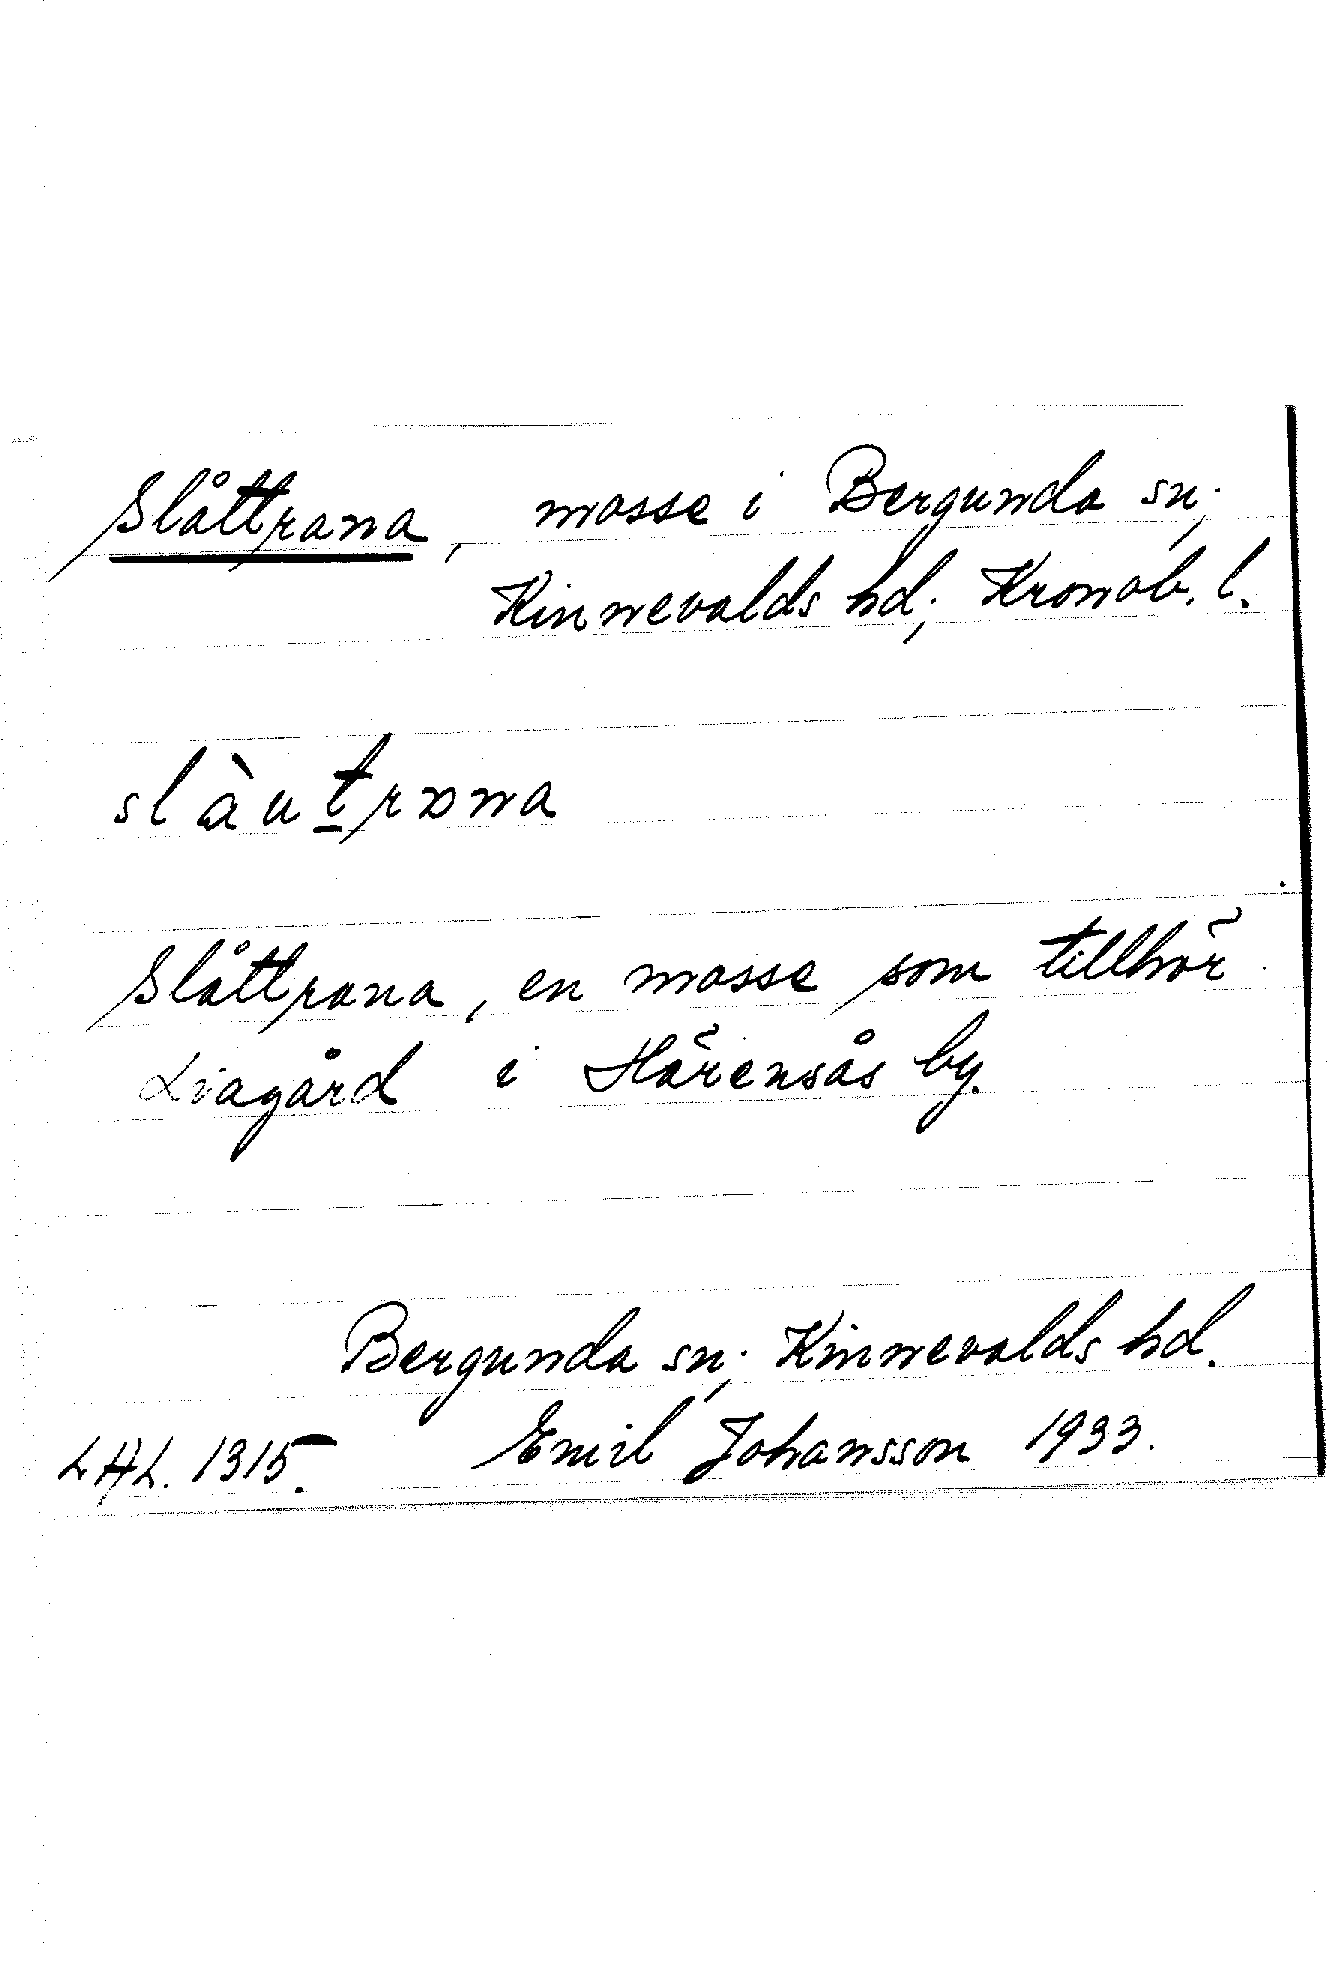 Slåttrana, mosse i Bergunda sn;
Kinnevalds hd; Kronob. l.
slàutrana
Slåttrana, en mosse som tillhör
Liagård i Härensås by.
Bergunda sn; Kinnevalds hd.
LAL. 1315. Emil Johansson 1933.